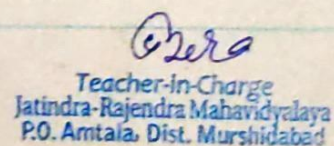 Teacher-in-Charge
Jatindra-Rajendra Mahavidyalaya
P.O. Amtala, Dist. Murshidabad